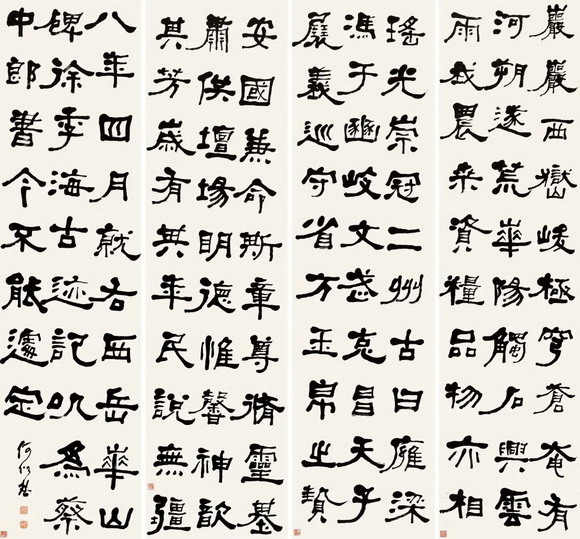 巖巖西嶽峻極穹蒼奄有
河朔遂荒華陽觸石興雲
雨我農桒資糧品物亦相
瑤光崇冠二州古曰雍梁
馮于豳岐文武克昌天子
展義巡守省方玉帛之贄
安國兼命斯章尊脩靈基
肅供壇場明德惟馨神歆
其芳歲有其年民說無疆
八年四月就右西岳華山
碑徐季海古迹記以為蔡
中郎書今不能遽定
何紹基